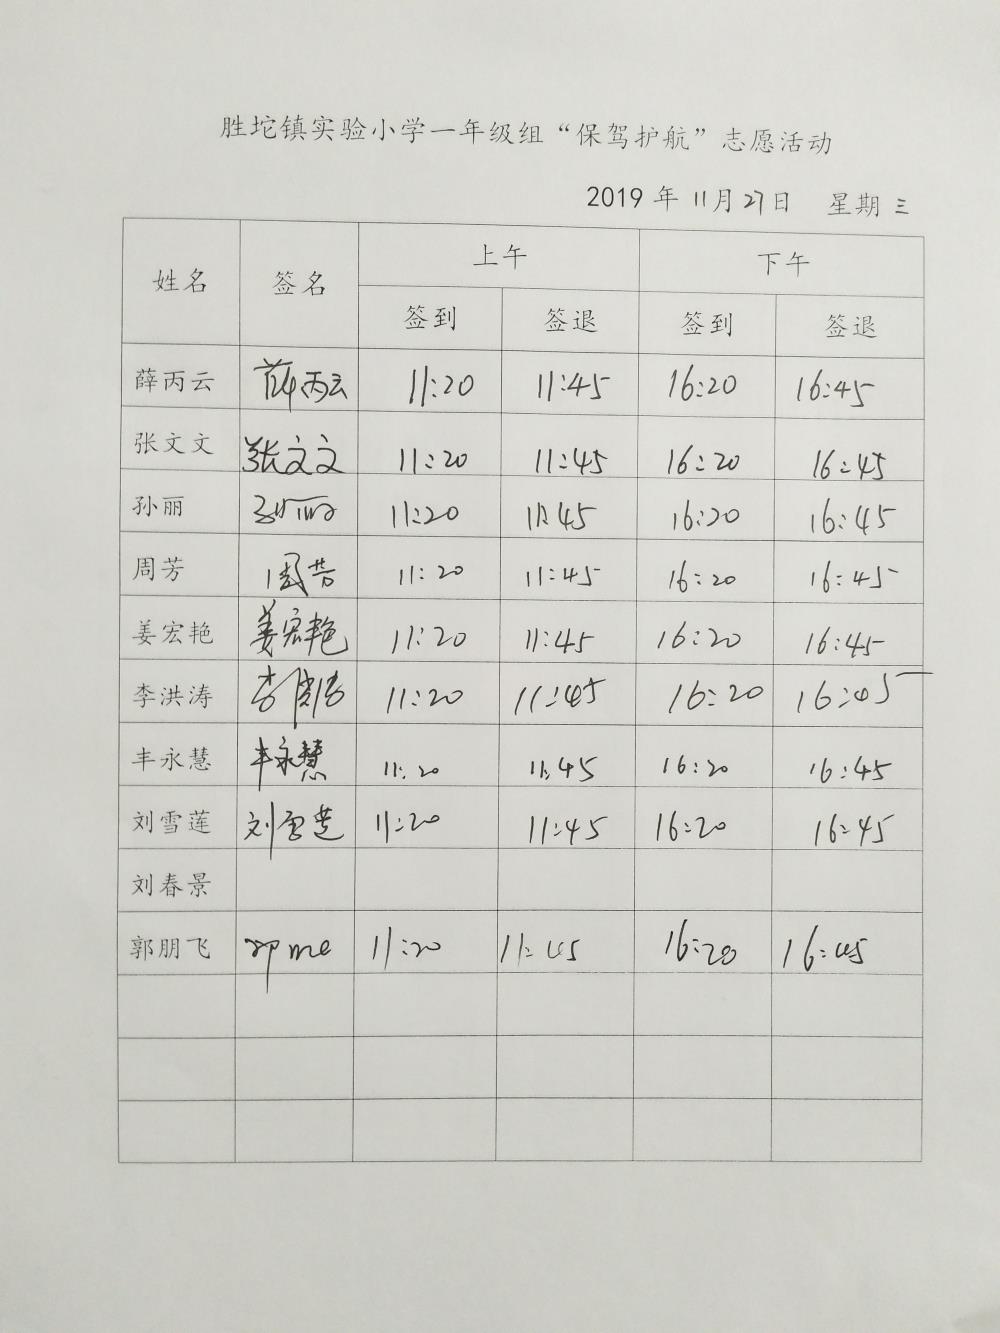 胜坨镇实验小学一年级组“保驾护航”志愿活动
2019 年 11月27日 星期三
姓名 签名 上午 下午
签到 签退 签到 签退
薛丙云 薛丙云 11:20 11:45 16:20 16:45
张文文 张文文 11:20 11:45 16:20 16:45
孙丽 孙丽 11:20 11:45 16:20 16:45
周芳 周芳 11:20 11:45 16:20 16:45
姜宏艳 姜宏艳 11:20 11:45 16:20 16:45
李洪涛 李洪涛 11:20 11:45 16:20 16:45
丰永慧 丰永慧 11:20 11:45 16:20 16:45
刘雪莲 刘雪莲 11:20 11:45 16:20 16:45
刘春景
郭朋飞 11:20 11:45 16:20 16:45